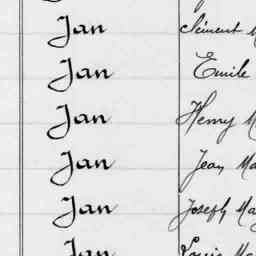 Jan Clément
Jan Emile
Jan Henry
Jan Jean Ma
Jan Joseph Ma
Jan Louis Ma